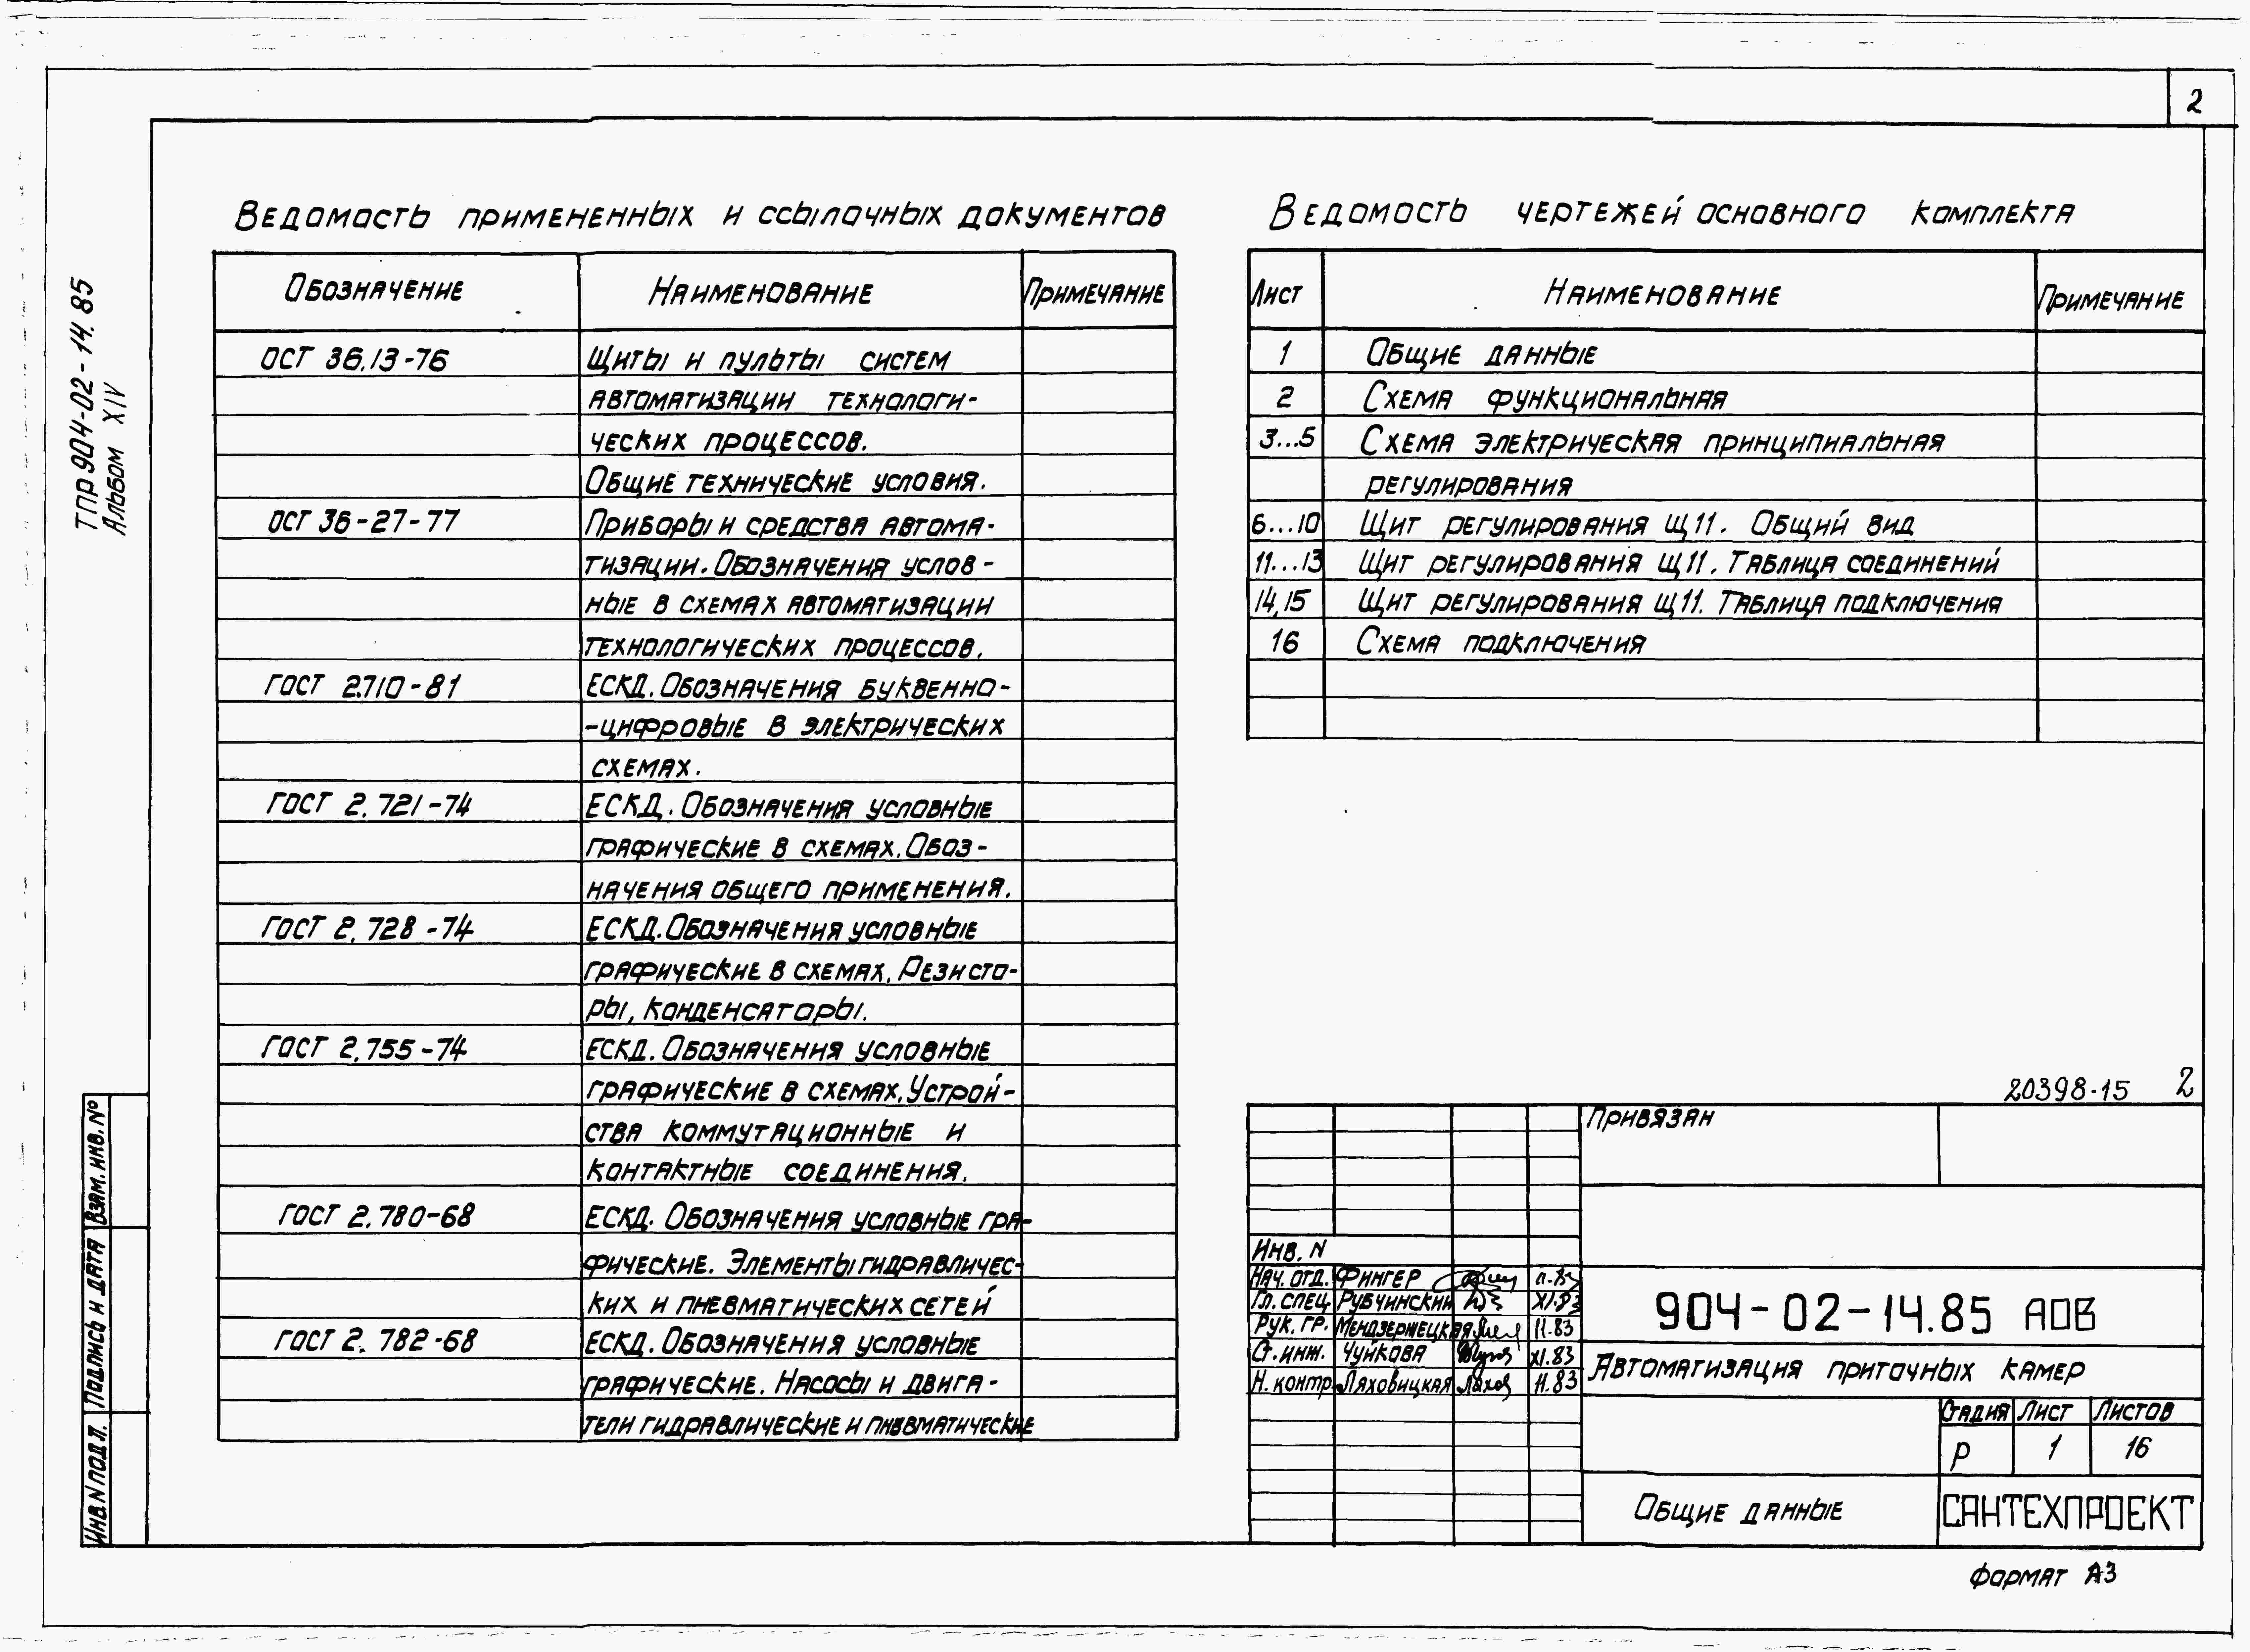 2
ТПР 904-02-14.85
Альбом XIV
Ведомость примененных и ссылочных документов
Обозначение Наименование Примечание
ОСТ 36.13-76 Щиты и пульты систем
автоматизации технологи-
ческих процессов.
Общие технические условия.
ОСТ 36-27-77 Приборы и средства автома-
тизации. Обозначения услов-
ные в схемах автоматизации
технологических процессов.
ГОСТ 2.710-81 ЕСКД. Обозначения буквенно-
-цифровые в электрических
схемах.
ГОСТ 2.721-74 ЕСКД. Обозначения условные
графические в схемах. Обоз-
начения общего применения.
ГОСТ 2.728-74 ЕСКД. Обозначения условные
графические в схемах. Резисто-
ры, конденсаторы.
ГОСТ 2.755-74 ЕСКД. Обозначения условные
графические в схемах. Устрой-
ства коммутационные и
контактные соединения.
ГОСТ 2.780-68 ЕСКД. Обозначения условные гра-
фические. Элементы гидравличес-
ких и пневматических сетей
ГОСТ 2.782-68 ЕСКД. Обозначения условные
графические. Насосы и двига-
тели гидравлические и пневматические
Ведомость чертежей основного комплекта
Лист Наименование Примечание
1 Общие данные
2 Схема функциональная
3...5 Схема электрическая принципиальная
регулирования
6...10 Щит регулирования Щ11. Общий вид
11...13 Щит регулирования Щ11. Таблица соединений
14,15 Щит регулирования Щ11. Таблица подключения
16 Схема подключения
20398-15 2
Привязан
Инв. N
Нач. отд. Фингер
Гл. спец. Рубчинский XI.83
Рук. гр. Мендзержецкая 11.83
Ст. инж. Чуйкова XI.83
Н. контр. Ляховицкая 11.83
904-02-14.85 АОВ
Автоматизация приточных камер
Стадия Лист Листов
Р 1 16
Общие данные
САНТЕХПРОЕКТ
Формат А3
Взам. инв. №
Подпись и дата
Инв N подл.